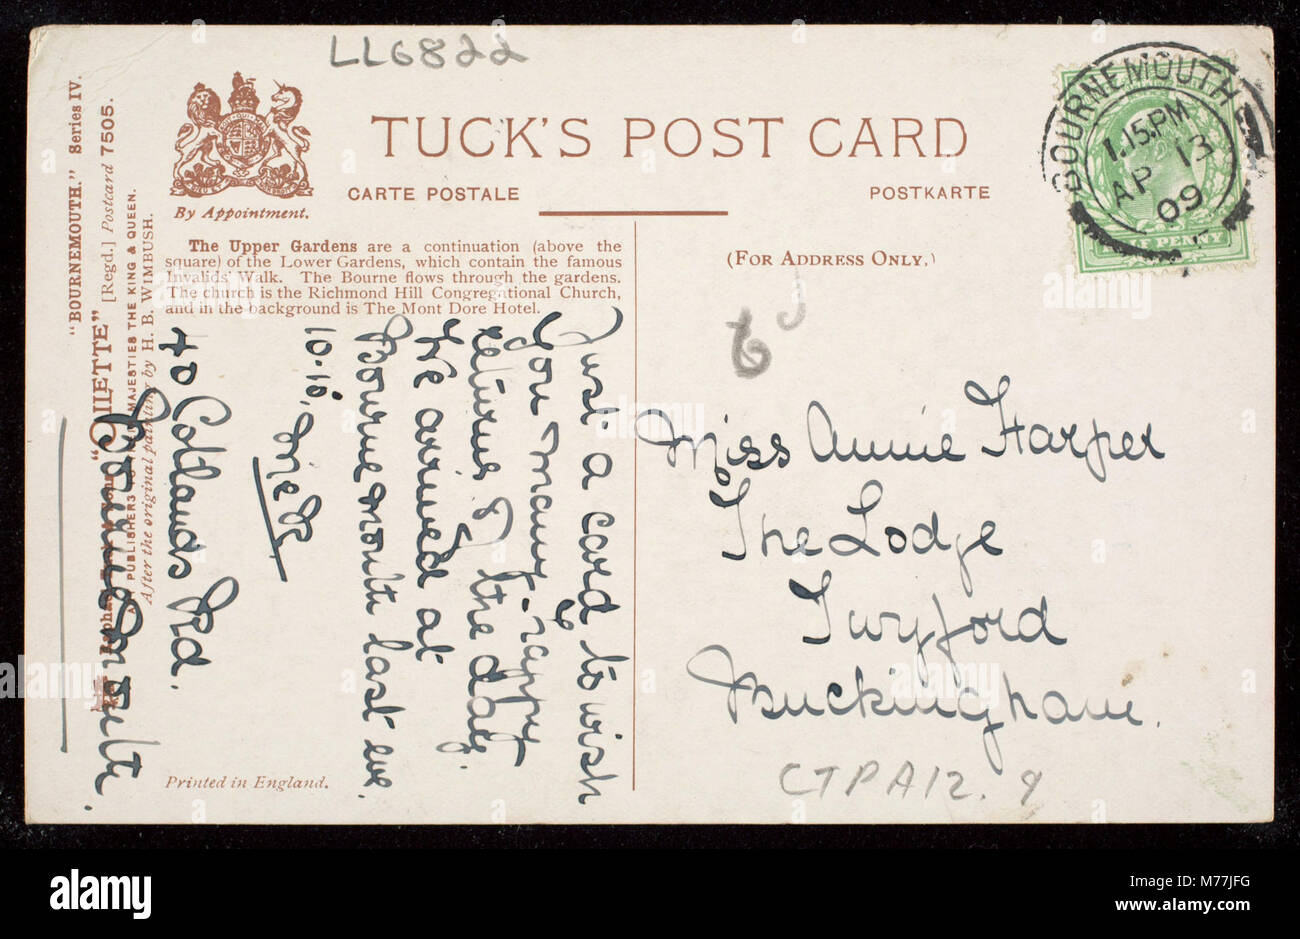 LL6822
TUCK'S POST CARD
CARTE POSTALE
POSTKARTE
By Appointment.
(FOR ADDRESS ONLY.)
The Upper Gardens are a continuation (above the
square) of the Lower Gardens, which contain the famous
Invalids' Walk. The Bourne flows through the gardens.
The church is the Richmond Hill Congregational Church,
and in the background is The Mont Dore Hotel.
BOURNEMOUTH
1.15.PM
AP 13
09
HALF PENNY
Just a card to wish
you many happy
returns of the day.
We arrived at
Bournemouth last eve.
10.15,
40 Cotlands Rd.
Bournemouth.
Miss Annie Harper
The Lodge
Twyford
Buckingham.
CTPA12.9
"BOURNEMOUTH." Series IV.
"OILETTE" [Regd.] Postcard 7505.
PUBLISHERS TO THEIR MAJESTIES THE KING & QUEEN.
After the original painting by H. B. WIMBUSH.
Printed in England.
alamy
Image ID: M77JFG
www.alamy.com